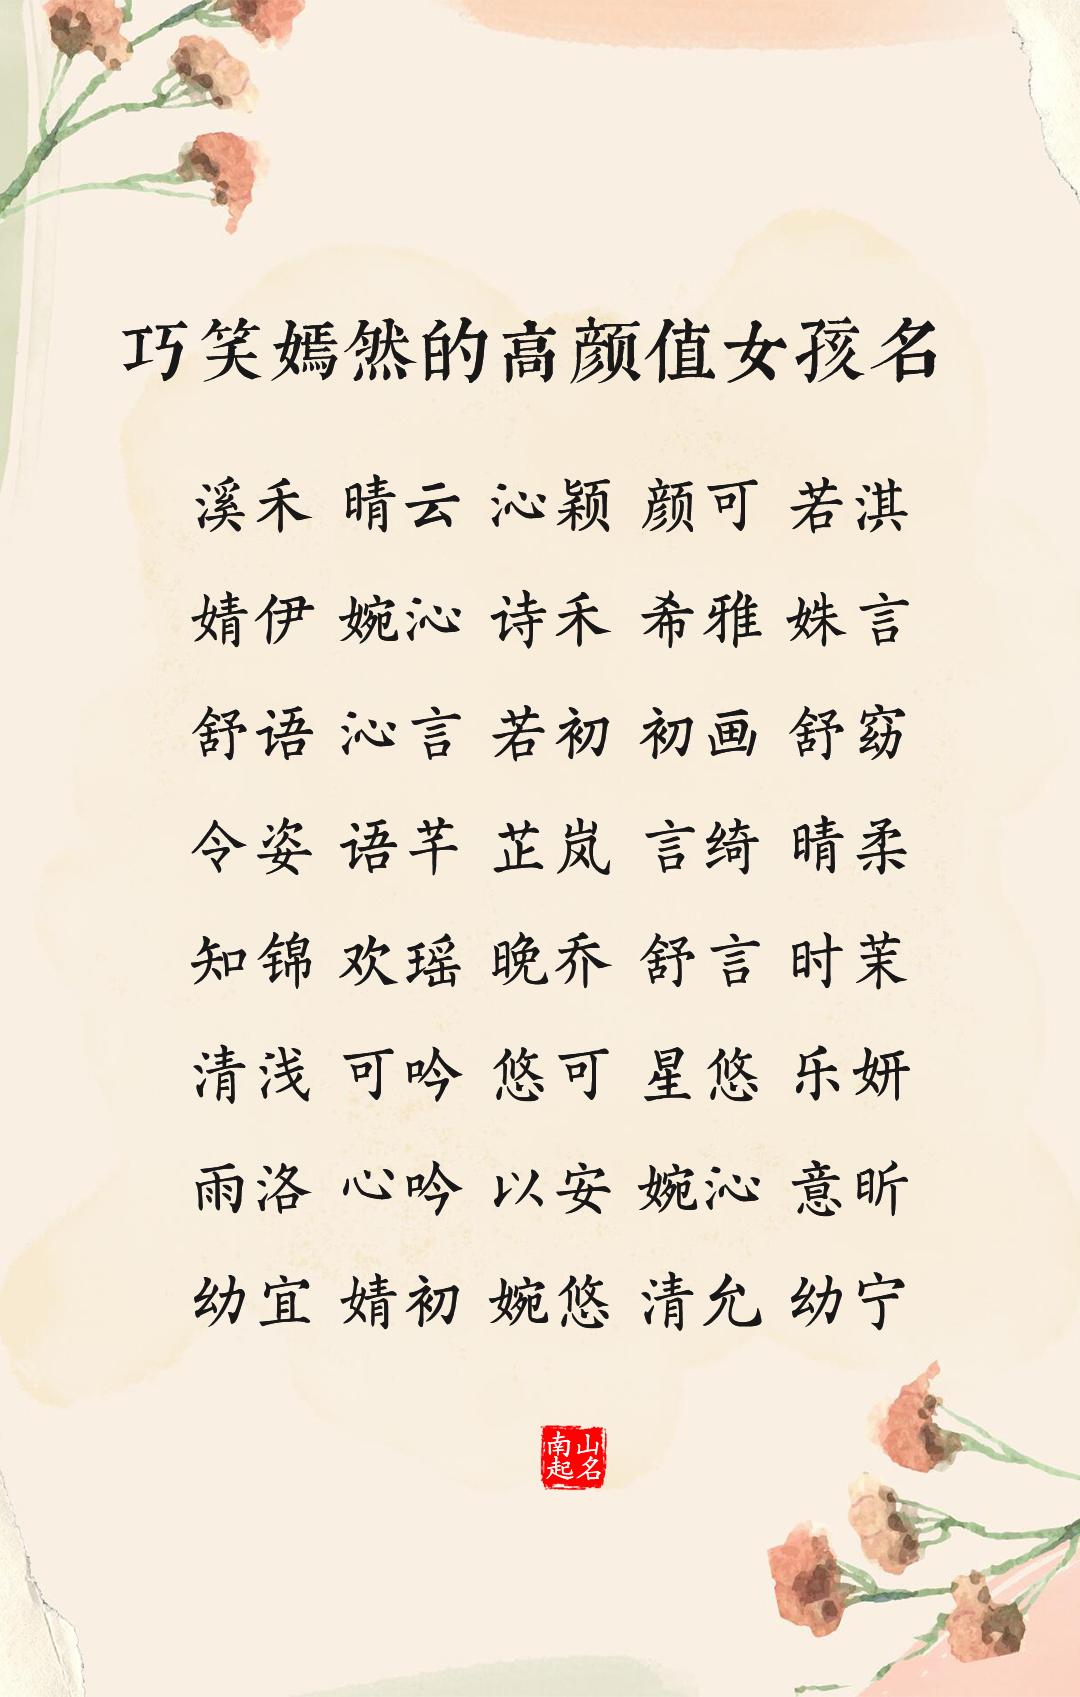 巧笑嫣然的高颜值女孩名
溪禾 晴云 沁颖 颜可 若淇
婧伊 婉沁 诗禾 希雅 姝言
舒语 沁言 若初 初画 舒窈
令姿 语芊 芷岚 言绮 晴柔
知锦 欢瑶 晚乔 舒言 时茉
清浅 可吟 悠可 星悠 乐妍
雨洛 心吟 以安 婉沁 意昕
幼宜 婧初 婉悠 清允 幼宁
南山
起名